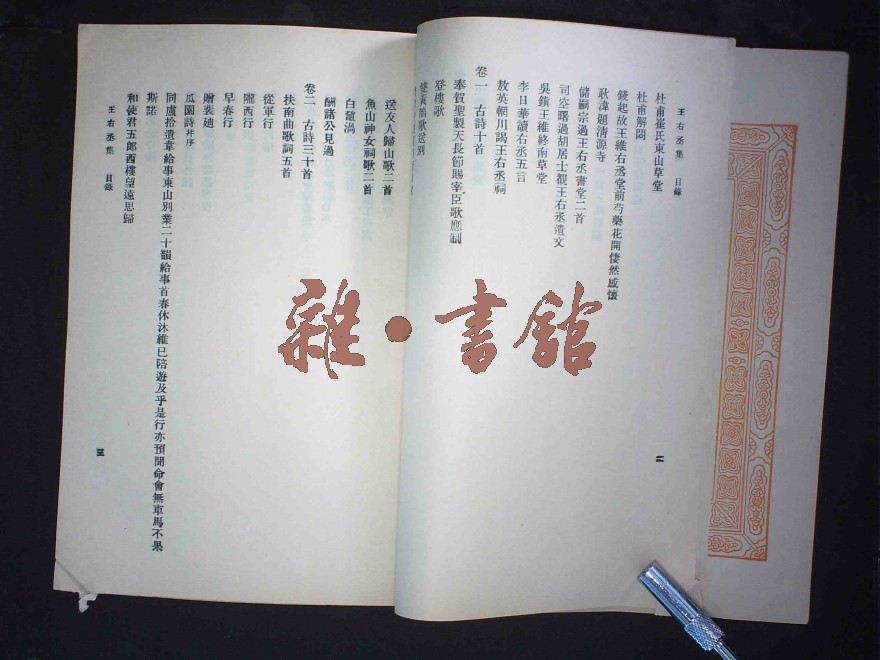 王右丞集 目錄
二
杜甫崔氏東山草堂
杜甫解悶
錢起故王維右丞堂前芍藥花開悽然感懷
耿湋題清源寺
儲嗣宗過王右丞書堂二首
司空曙過胡居士覩王右丞遺文
吳鎮王維終南草堂
李日華讀右丞五言
敖英輞川謁王右丞祠
卷一 古詩十首
奉賀聖製天長節賜宰臣歌應制
登樓歌
雙黃鵠歌送別
送友人歸山歌二首
魚山神女祠歌二首
白黿渦
酬諸公見過
卷二 古詩三十首
扶南曲歌詞五首
從軍行
隴西行
早春行
贈裴迪
瓜園詩并序
同盧拾遺韋給事東山別業二十韻給事首春休沐維已陪遊及乎是行亦預聞命會無車馬不果
斯諾
和使君五郎西樓望遠思歸
王右丞集 目錄
三
雜·書館